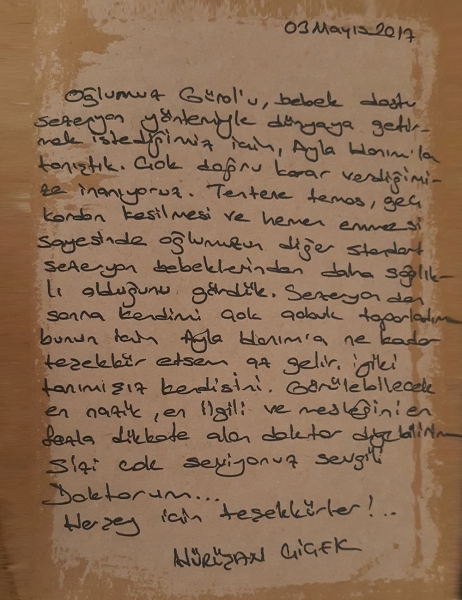 03 Mayıs 2017
Oğlumuz Gürol'u, bebek dostu
sezeryan yöntemiyle dünyaya getir-
mek istediğimiz için, Ayla Hanım'la
tanıştık. Çok doğru karar verdiğimi-
ze inanıyoruz. Tentene temas, geç
kordon kesilmesi ve hemen emmesi
sayesinde oğlumuzun diğer standart
sezeryan bebeklerinden daha sağlık-
lı olduğunu gördük. Sezeryandan
sonra kendimi çok çabuk toparladım
bunun için Ayla Hanım'a ne kadar
teşekkür etsem az gelir. iyiki
tanımışız kendisini. Görülebilecek
en nazik, en ilgili ve mesleğini en
fazla dikkate alan doktor diyebilirim
Sizi çok seviyoruz sevgili
Doktorum...
Herşey için teşekkürler!..
NURİZAN ÇİÇEK